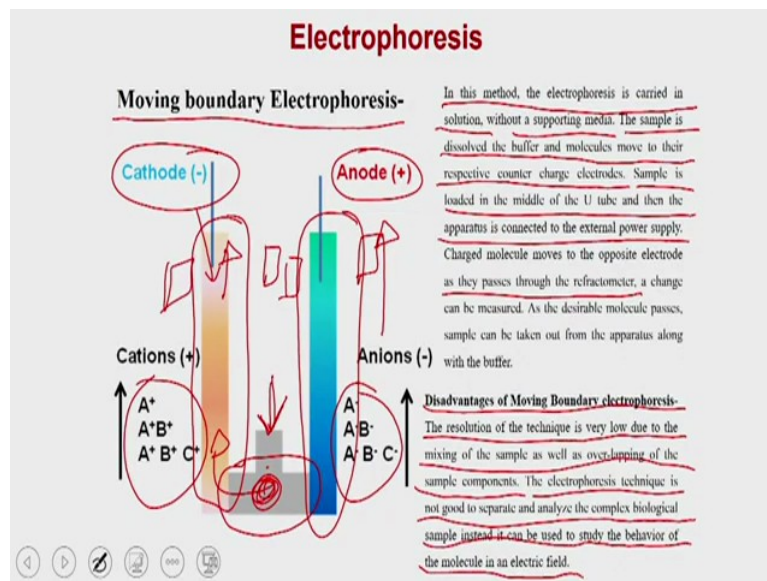 Electrophoresis
Moving boundary Electrophoresis-
Cathode (-)
Anode (+)
Cations (+)
A+
A+B+
A+ B+ C+
Anions (-)
A-
A-B-
A- B- C-
In this method, the electrophoresis is carried in
solution, without a supporting media. The sample is
dissolved the buffer and molecules move to their
respective counter charge electrodes. Sample is
loaded in the middle of the U tube and then the
apparatus is connected to the external power supply.
Charged molecule moves to the opposite electrode
as they passes through the refractometer, a change
can be measured. As the desirable molecule passes,
sample can be taken out from the apparatus along
with the buffer.
Disadvantages of Moving Boundary electrophoresis-
The resolution of the technique is very low due to the
mixing of the sample as well as over-lapping of the
sample components. The electrophoresis technique is
not good to separate and analyze the complex biological
sample instead it can be used to study the behavior of
the molecule in an electric field.